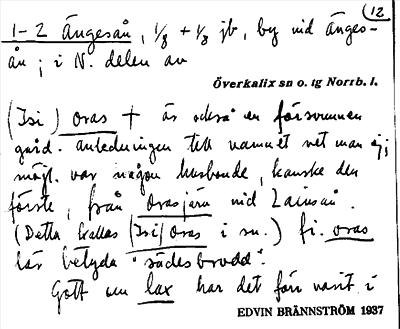 12
1-2 Ängesån, 1/8 + 1/8 jb, by vid Änges-
ån; i N. delen av
Överkalix sn o. tg Norrb. l.
(Isi) oras † är också en försvunnen
gård. Anledningen till namnet vet man ej;
möjl. var någon husbonde, kanske den
förste, från Orasjärv vid Lainioå.
(Detta kallas (Isi)oras i sn.) fi. oras
lär betyda "sädesbrodd".
Gott om lax har det förr varit i
EDVIN BRÄNNSTRÖM 1937